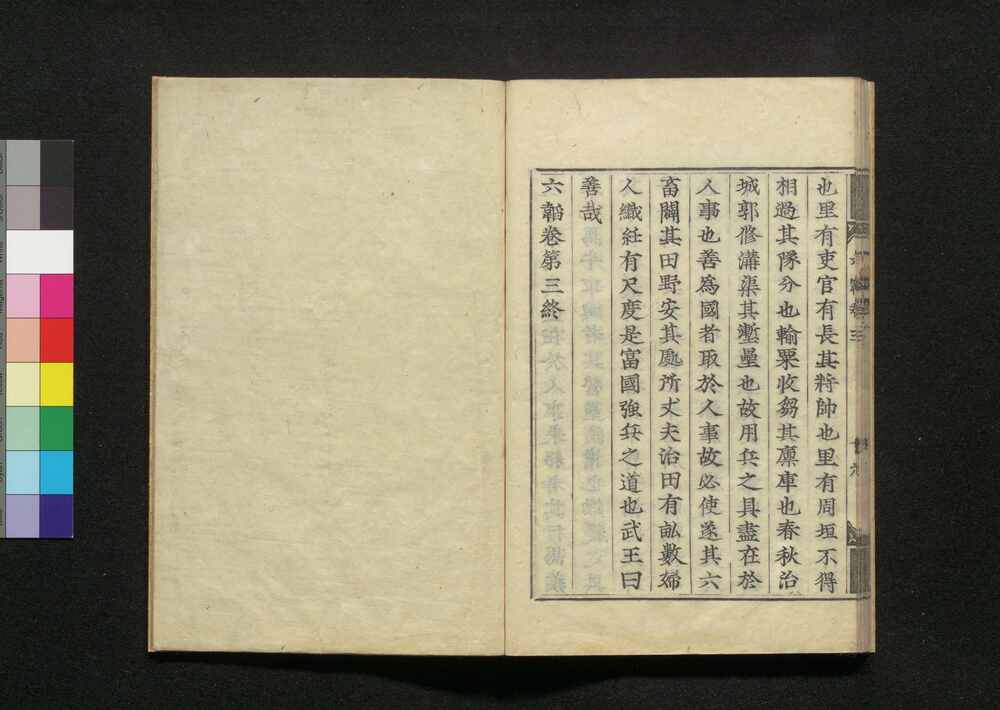 也里有吏官有長其將帥也里有周垣不得
相過其隊分也輸粟收芻其廩庫也春秋治
城郭修溝渠其塹壘也故用兵之具盡在於
人事也善爲國者取於人事故必使遂其六
畜闢其田野安其處所丈夫治田有畝數婦
人織紝有尺度是富國強兵之道也武王曰
善哉
六韜卷第三終